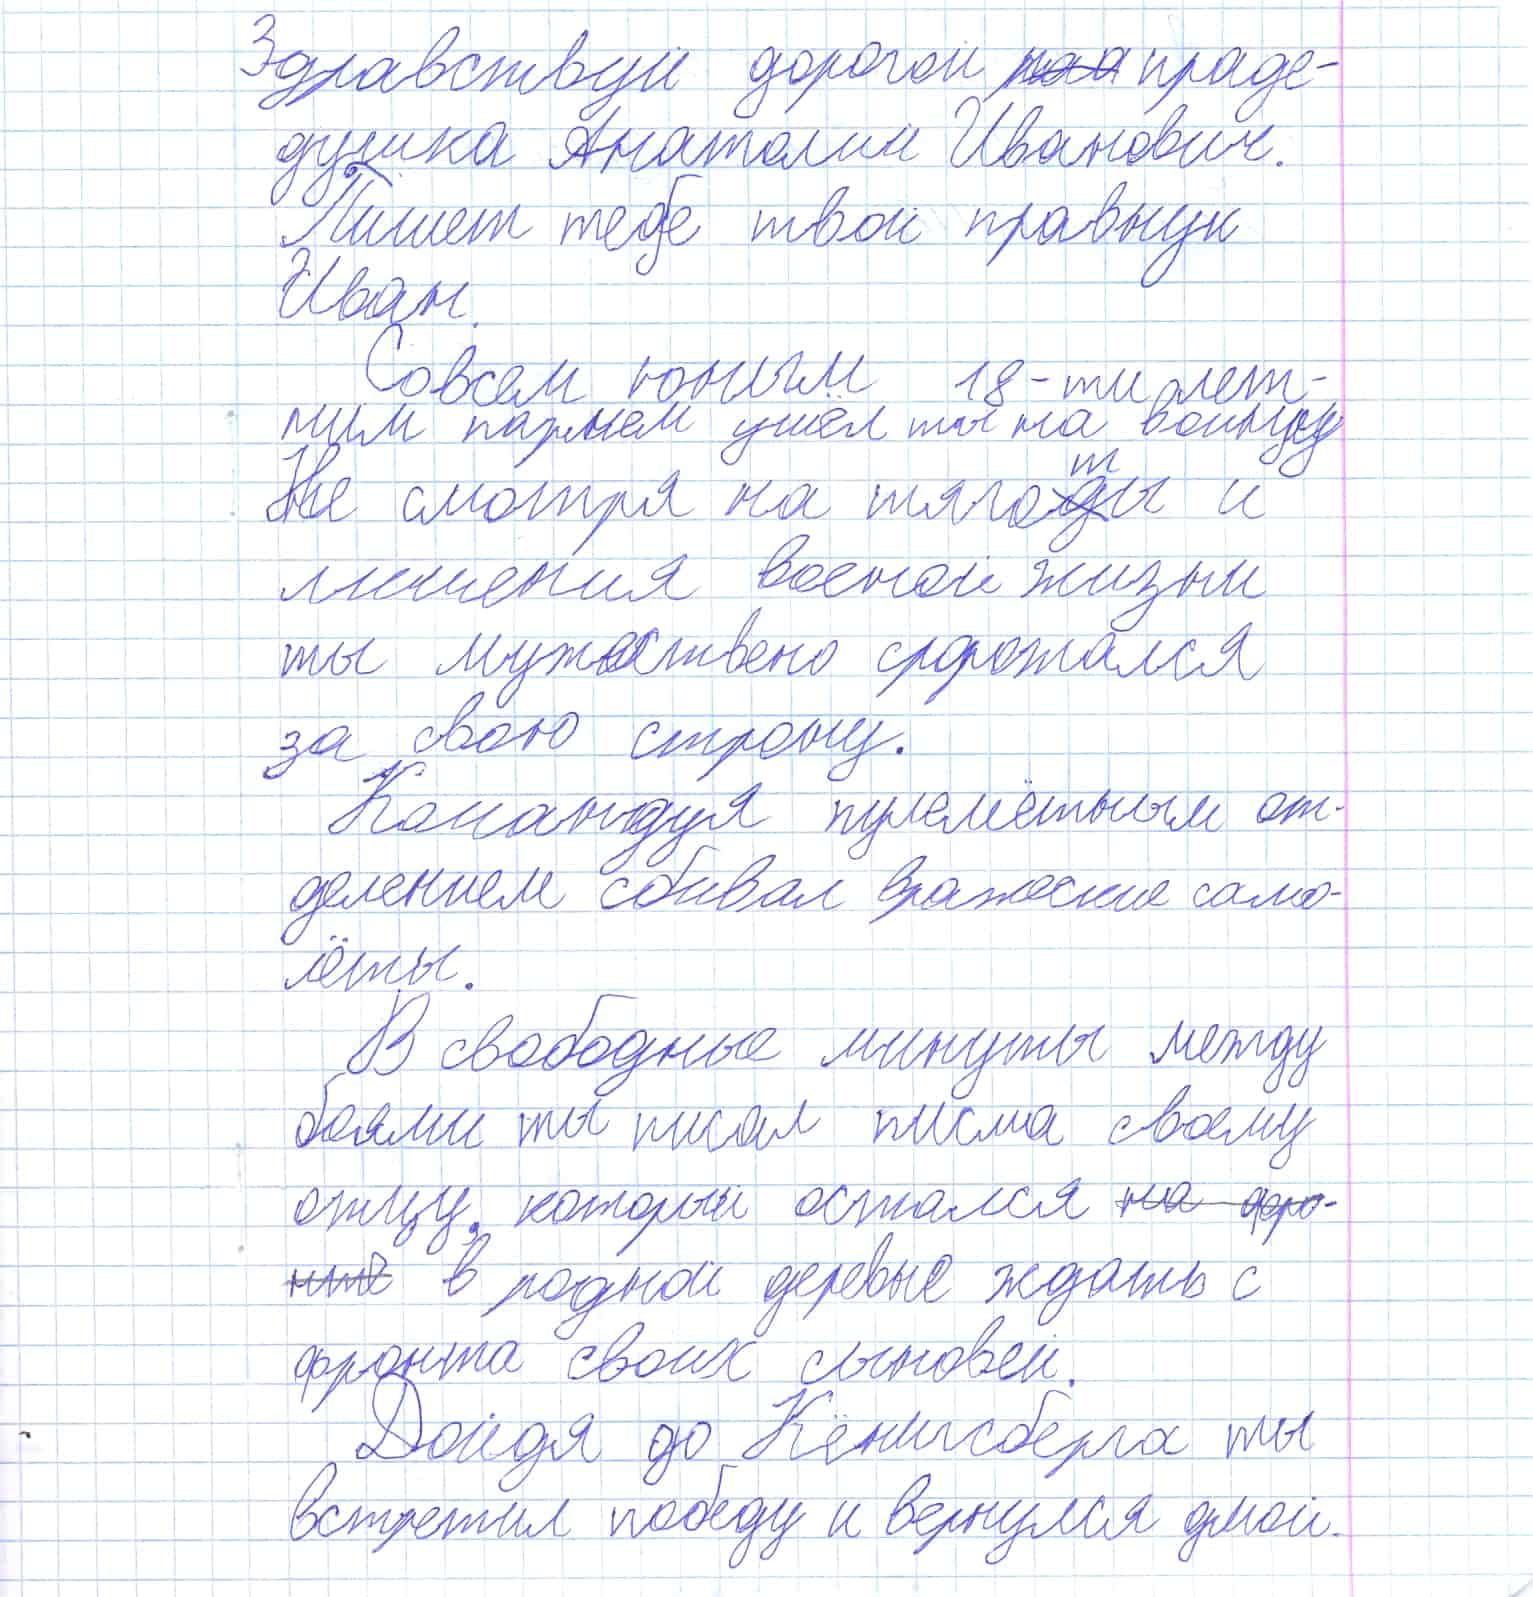 Здравствуй дорогой праде-
душка Анатолий Иванович.
Пишет тебе твой правнук
Иван.
Совсем юным 18-ти лет-
ним парнем ушёл ты на войну
Не смотря на тяготы и
лишения военой жизни
ты мужествено сражался
за свою страну.
Командуя пулемётным от-
делением сбивал вражеские само-
лёты.
В свободные минуты между
боями ты писал писма своему
отцу, который остался на фро-
нте в родной деревне ждать с
фронта своих сыновей.
Дойдя до Кёнигсберга ты
встретил победу и вернулся домой.